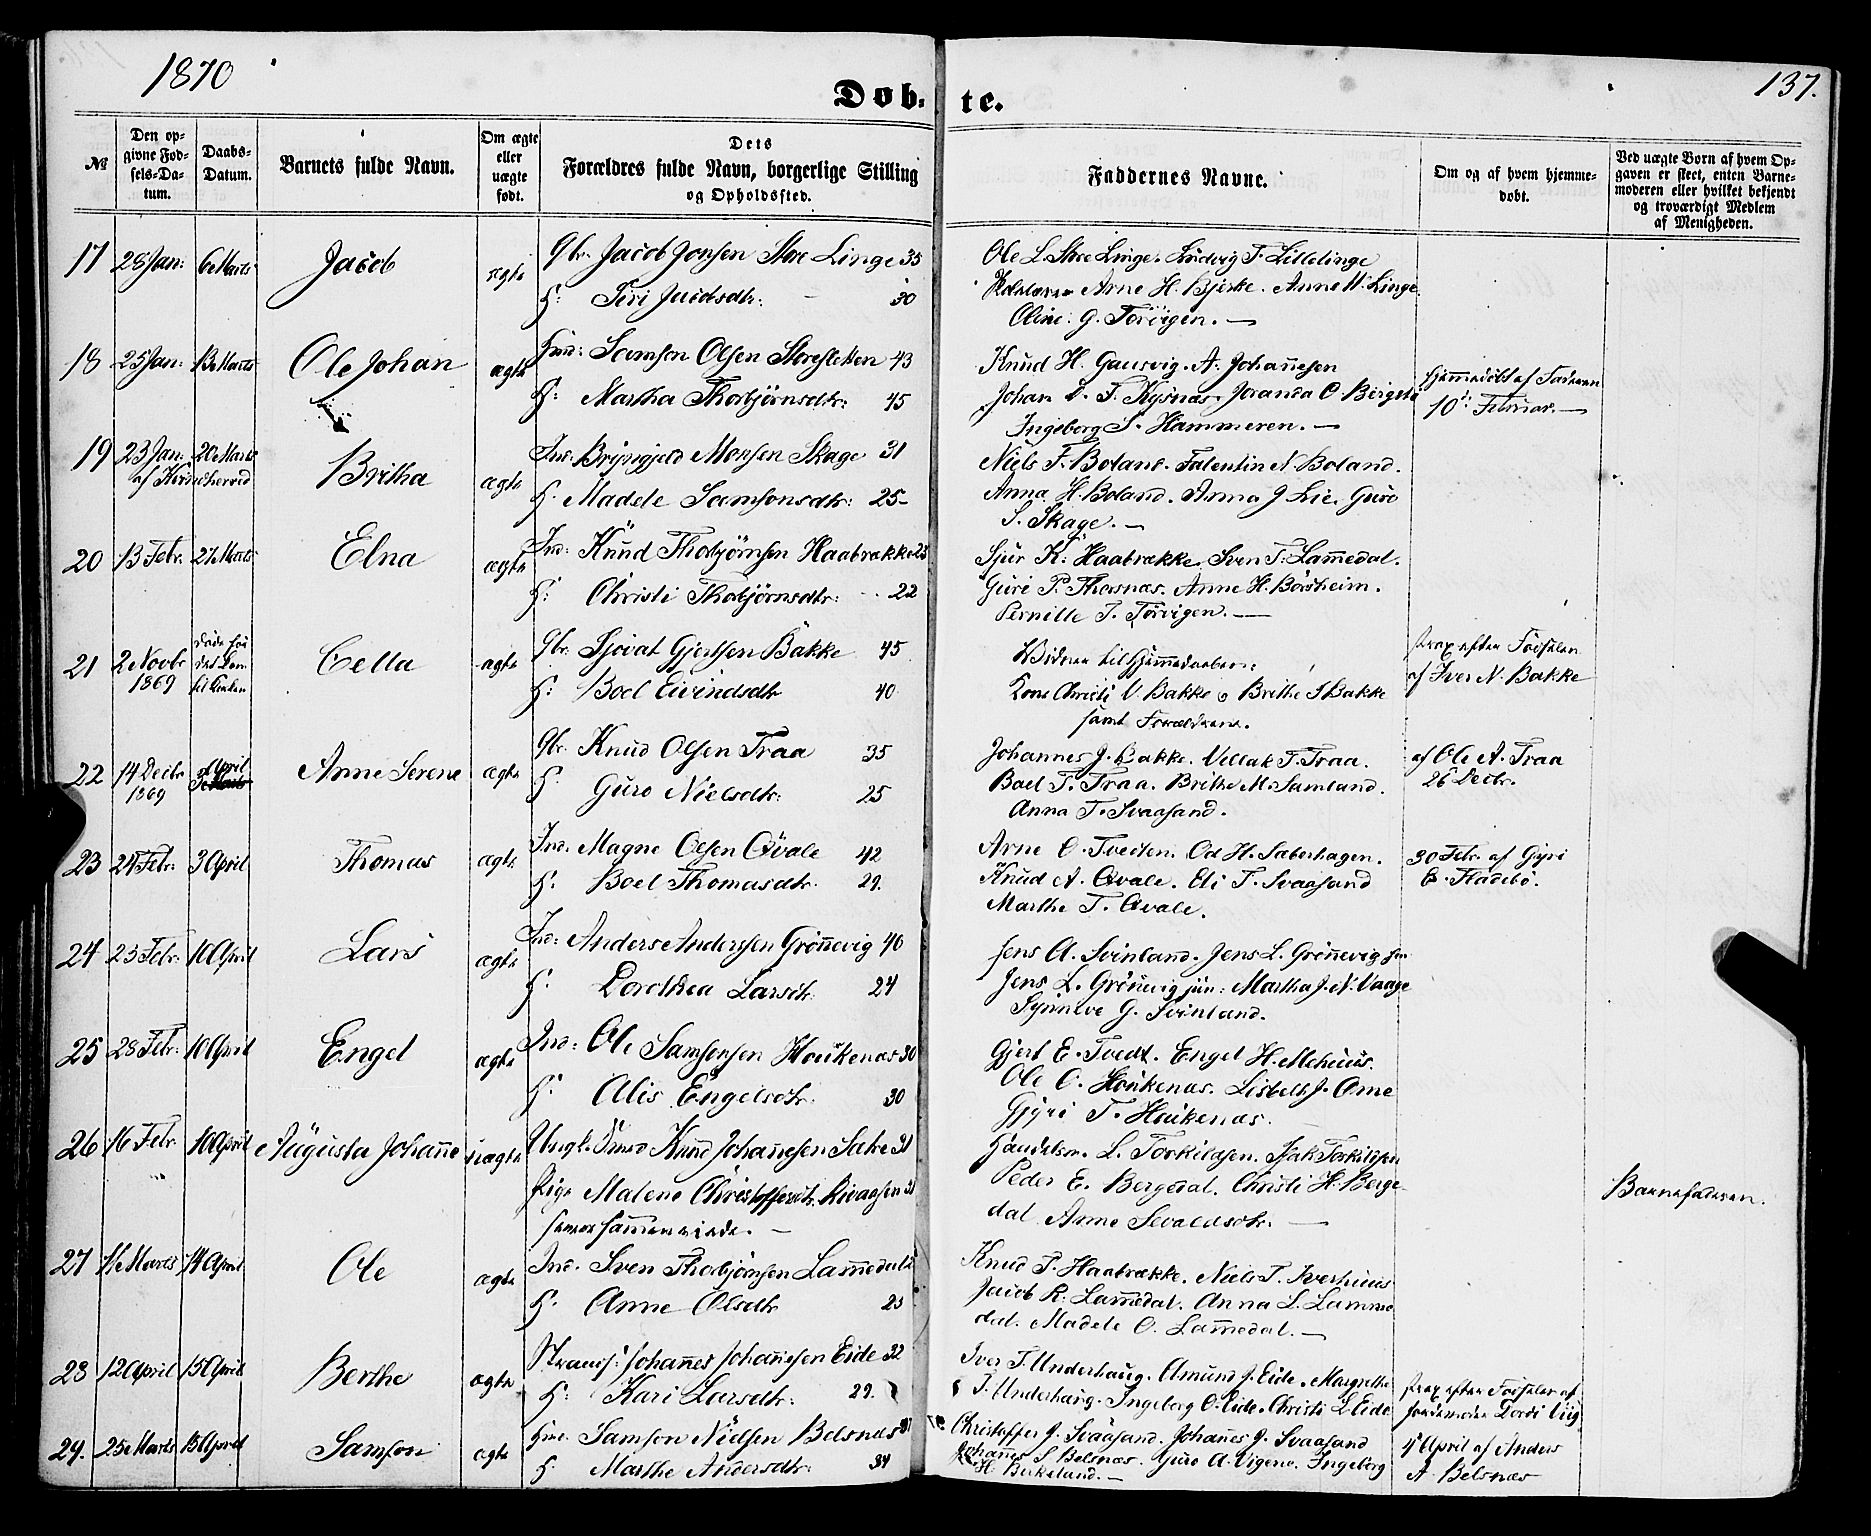 1870
137.
Døb- te.
№
Den op-
givne Fød-
sels-Da-
tum.
Daabs-
Datum.
Barnets fulde Navn.
Om ægte
eller
uægte
født.
Dets
Forældres fulde Navn, borgerlige Stilling
og Opholdssted.
Faddernes Navne.
Om og af hvem hjemme-
døbt.
Ved uægte Børn af hvem Op-
gaven er skeet, enten Barne-
moderen eller hvilket bekjendt
og troværdigt Medlem
af Menigheden.
17 28 Jan: 6 Marts Jacob ægte Gbr. Jacob Jonsen Store Linge 35
H: Siri Jacobsdtr: 30
Ole L. Store Linge. Ludvig T. Lillelinge
Arne H. Bjerke. Anne M. Linge
Oline G. Torvigen. —
18 25 Jan: 13 Marts Ole Johan ægte Hmd: Samson Olsen Storesletten 43
H: Martha Thorbjörnsdtr: 45
Knud H. Gausvig. A. Johannesen
Johan D. T. Kysnæs. Joranda O. Bergstö
Ingeborg S. Hammeren. —
Hjemmedöbt af Faderen
10de Februar. —
19 23 Jan: 20 Marts Britha ægte Ind: Brynjeld Monsen Skage 31
H. Madele Samsonsdtr: 25
Niels T. Boland. Falentin N. Boland.
Anna H. Boland. Anna J. Lie. Guro
S. Skage. —
20 13 Febr. 27 Marts Elna ægte Ind: Knud Thorbjörnsen Haabrække 28
H: Christi Thorbjörnsdtr: 22
Sjur K. Haabrække. Sven T. Lammedal.
Guri P. Thorsnæs. Anne H. Börsheim.
Pernille T. Törvigen. —
21 2 Novbr 1869 Cella ægte Gbr. Sjovat Gjertsen Bakke 45
H: Boel Eivindsdtr 40
Vidner til Hjemmedaaben:
Kone Christi N. Bakke o Brithe S Bakke
samt Forældrene.
strax efter Födselen
af Iver N. Bakke
22 14 Decbr 1869 3 April Anne Serene ægte Gbr. Knud Olsen Traa 35
H. Guro Nielsdtr: 25
Johannes J. Bakke. Vellak T. Traa.
Boel T. Traa. Brithe M. Samland.
Anna T. Svaasand.
af Ole A. Traa
26 Decbr.
23 24 Febr: 3 April Thomas ægte Ind. Magne Olsen Qvale 42
H: Boel Thomasdtr. 29.
Arne O. Tveiten. Od H. Saberhagen.
Knud A. Qvale. Eli T. Svaasand
Marthe T. Qvale.
30 Febr. af Gyri
E. Fladebö.
24 23 Febr: 10 April Lars ægte Ind: Anders Anderssen Grönnevig 40
H. Dorothea Larsdtr. 24
Jens A. Svinland. Jens L. Grönnevig sen
Jens L. Grönnevig jun: Martha J. N. Vaage
Synneve G. Svinland.
25 28 Febr: 10 April Engel ægte Ind: Ole Samsonsen Haukenæs 30
H: Alis Engelsdtr. 30
Gjert E. Tvedt. Engel H. Mehuus.
Ole O. Haukenæs. Lisbeth J. Ome
Gjyri T. Haukenæs.
26 16 Febr. 10 April Augusta Johanne uægte Ungk. Knud Johannesen Sætre 31
Pige Malene Christoffersdtr. Rivaasen 21
Handelsm. L. Torkildsen. Isak Torkildsen
Peder E. Bergedal. Christi H. Berge-
dal. Anne Sevaldsdtr. —
Barnefaderen.
27 11 Marts 14 April Ole ægte Ind. Sven Thorbjörnsen Lammedal
H. Anne Olsdtr 25
Knud T. Haabrække. Niels T. Iverhuus
Jacob R. Lammedal. Anna L. Lamme
dal. Madele O. Lammedal. —
28 12 April 15 April Berthe ægte Strands: Johannes Johannesen Eide 32
H: Kari Larsdtr: 29.
Iver T. Underhaug. Amund J. Eide. Margrethe
I. Underhaug. Ingeborg O. Eide. Christi L Eide
strax efter Födselen af
Jordemoder Dordi Viig
29. 25 Marts 15 April Samson ægte Hmd. Samson Nielsen Belsnæs
H. Marthe Andersdtr: 34
Christoffer J. Svaasand. Johannes J. Svaasand
Johannes S Belsnæs. Guro A. Vigene. Ingeborg
H. Birkeland. —
4 April af Anders
A. Belsnæs